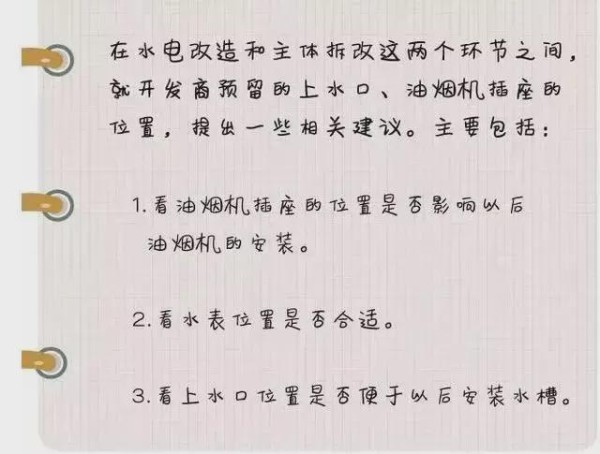 在水电改造和主体拆改这两个环节之间，
就开发商预留的上水口、油烟机插座的
位置，提出一些相关建议。主要包括：
1.看油烟机插座的位置是否影响以后
油烟机的安装。
2.看水表位置是否合适。
3.看上水口位置是否便于以后安装水槽。